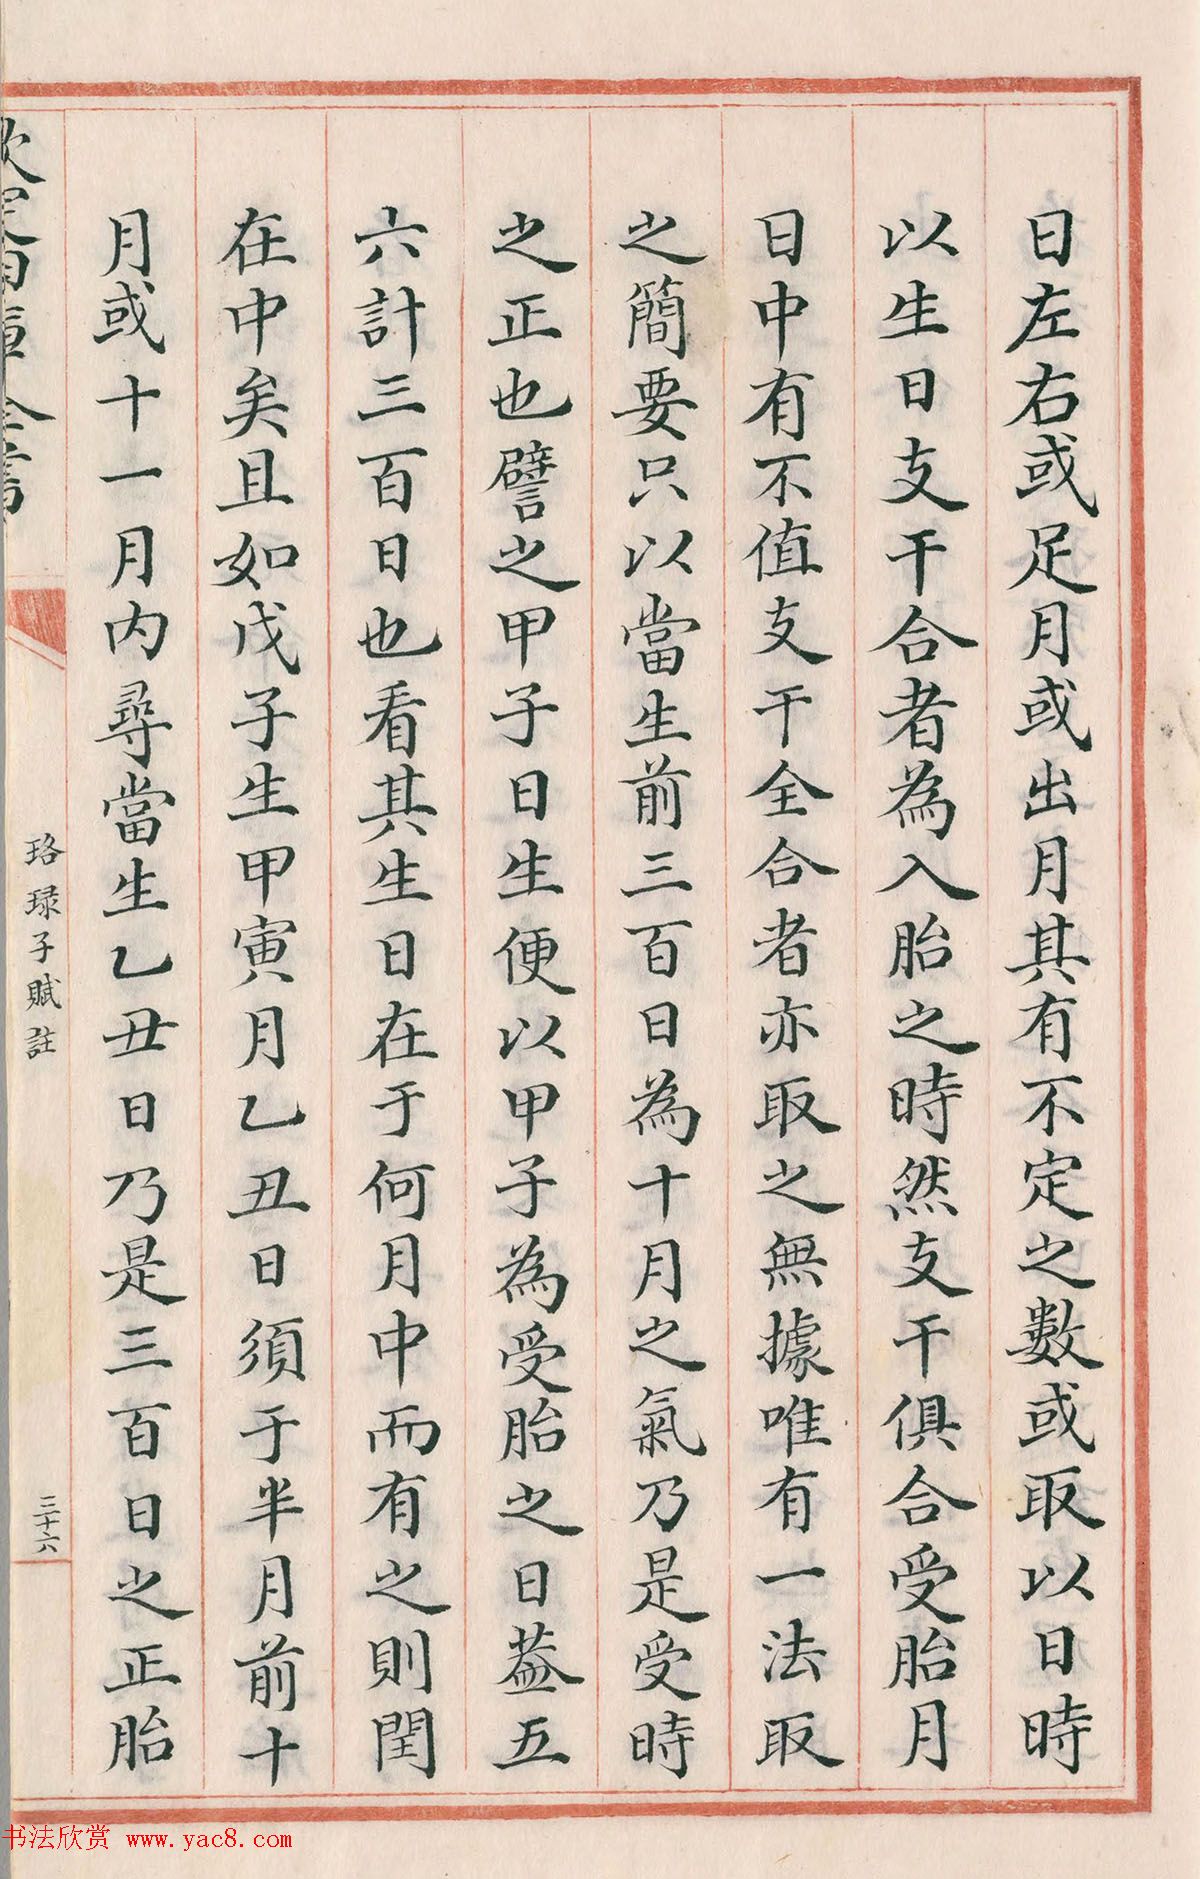 日左右或足月或出月其有不定之數或取以日時
以生日支干合者為入胎之時然支干俱合受胎月
日中有不值支干全合者亦取之無據唯有一法取
之簡要只以當生前三百日為十月之氣乃是受時
之正也譬之甲子日生便以甲子為受胎之日葢五
六計三百日也看其生日在于何月中而有之則閏
在中矣且如戊子生甲寅月乙丑日須于半月前十
月或十一月内尋當生乙丑日乃是三百日之正胎
欽定四庫全書
珞琭子賦註
三十六
书法欣赏 www.yac8.com